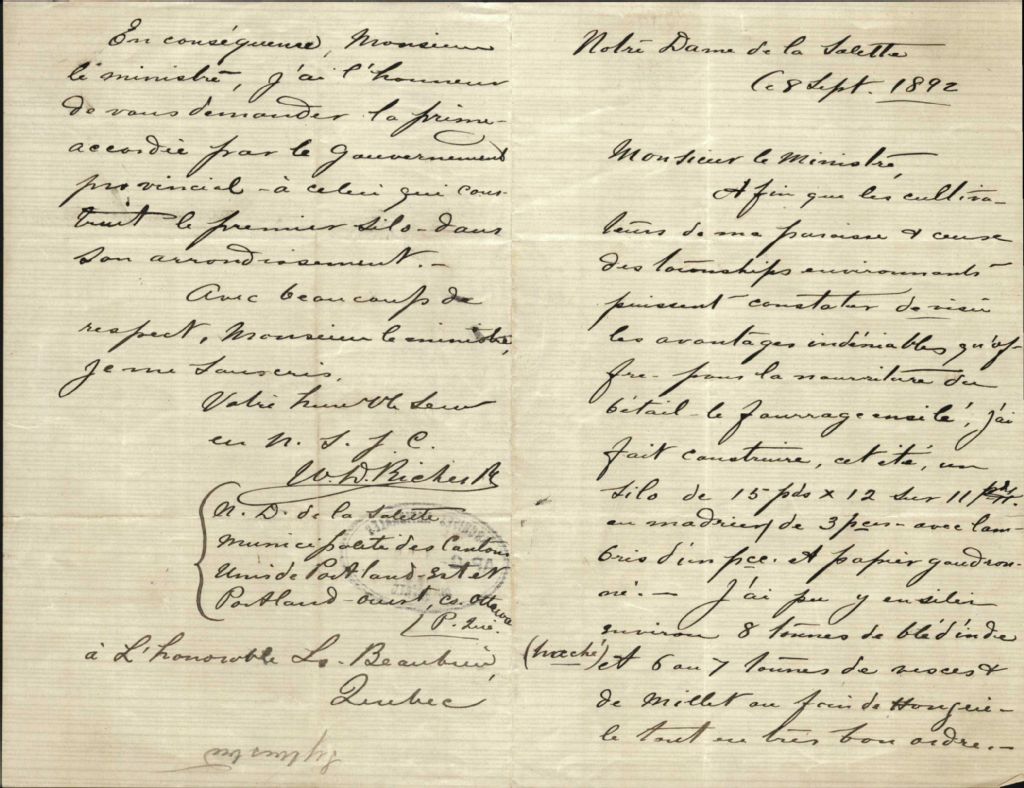 Notre Dame de la Salette
Ce 8 Sept. 1892
Monsieur le Ministre
Afin que les cultiva-
teurs de ma paroisse & ceux
des townships environnants
puissent constater de visu
les avantages indéniables, qu'of-
fre - pour la nourriture du
bétail - le fourrage ensilé, j'ai
fait construire, cet été, un
silo de 15 pds x 12 sur 11 pds
en madriers de 3 pces - avec lam-
bris d'un pce. et papier goudron-
né. - J'ai pu y ensiler
environ 8 tonnes de blé d'inde
(haché) et 6 ou 7 tonnes de vesces &
de Millet ou foin de Hongrie -
le tout en très bon ordre. -
En conséquence, Monsieur
le ministre, j'ai l'honneur
de vous demander la prime -
accordée par le Gouvernement
provincial - à celui qui cons-
truit le premier silo - dans
son arrondissement. -
Avec beaucoup de
respect, Monsieur le ministre,
je me souscris,
Votre humble serv
en N. S. J. C.
W. D. Richer Ptr
N. D. de la Salette
Municipalité des Cantons
Unis de Portland - Est et
Portland - ouest, co. Ottawa
P. Qué.
à L'honorable Ls. Beaubien,
Quebec